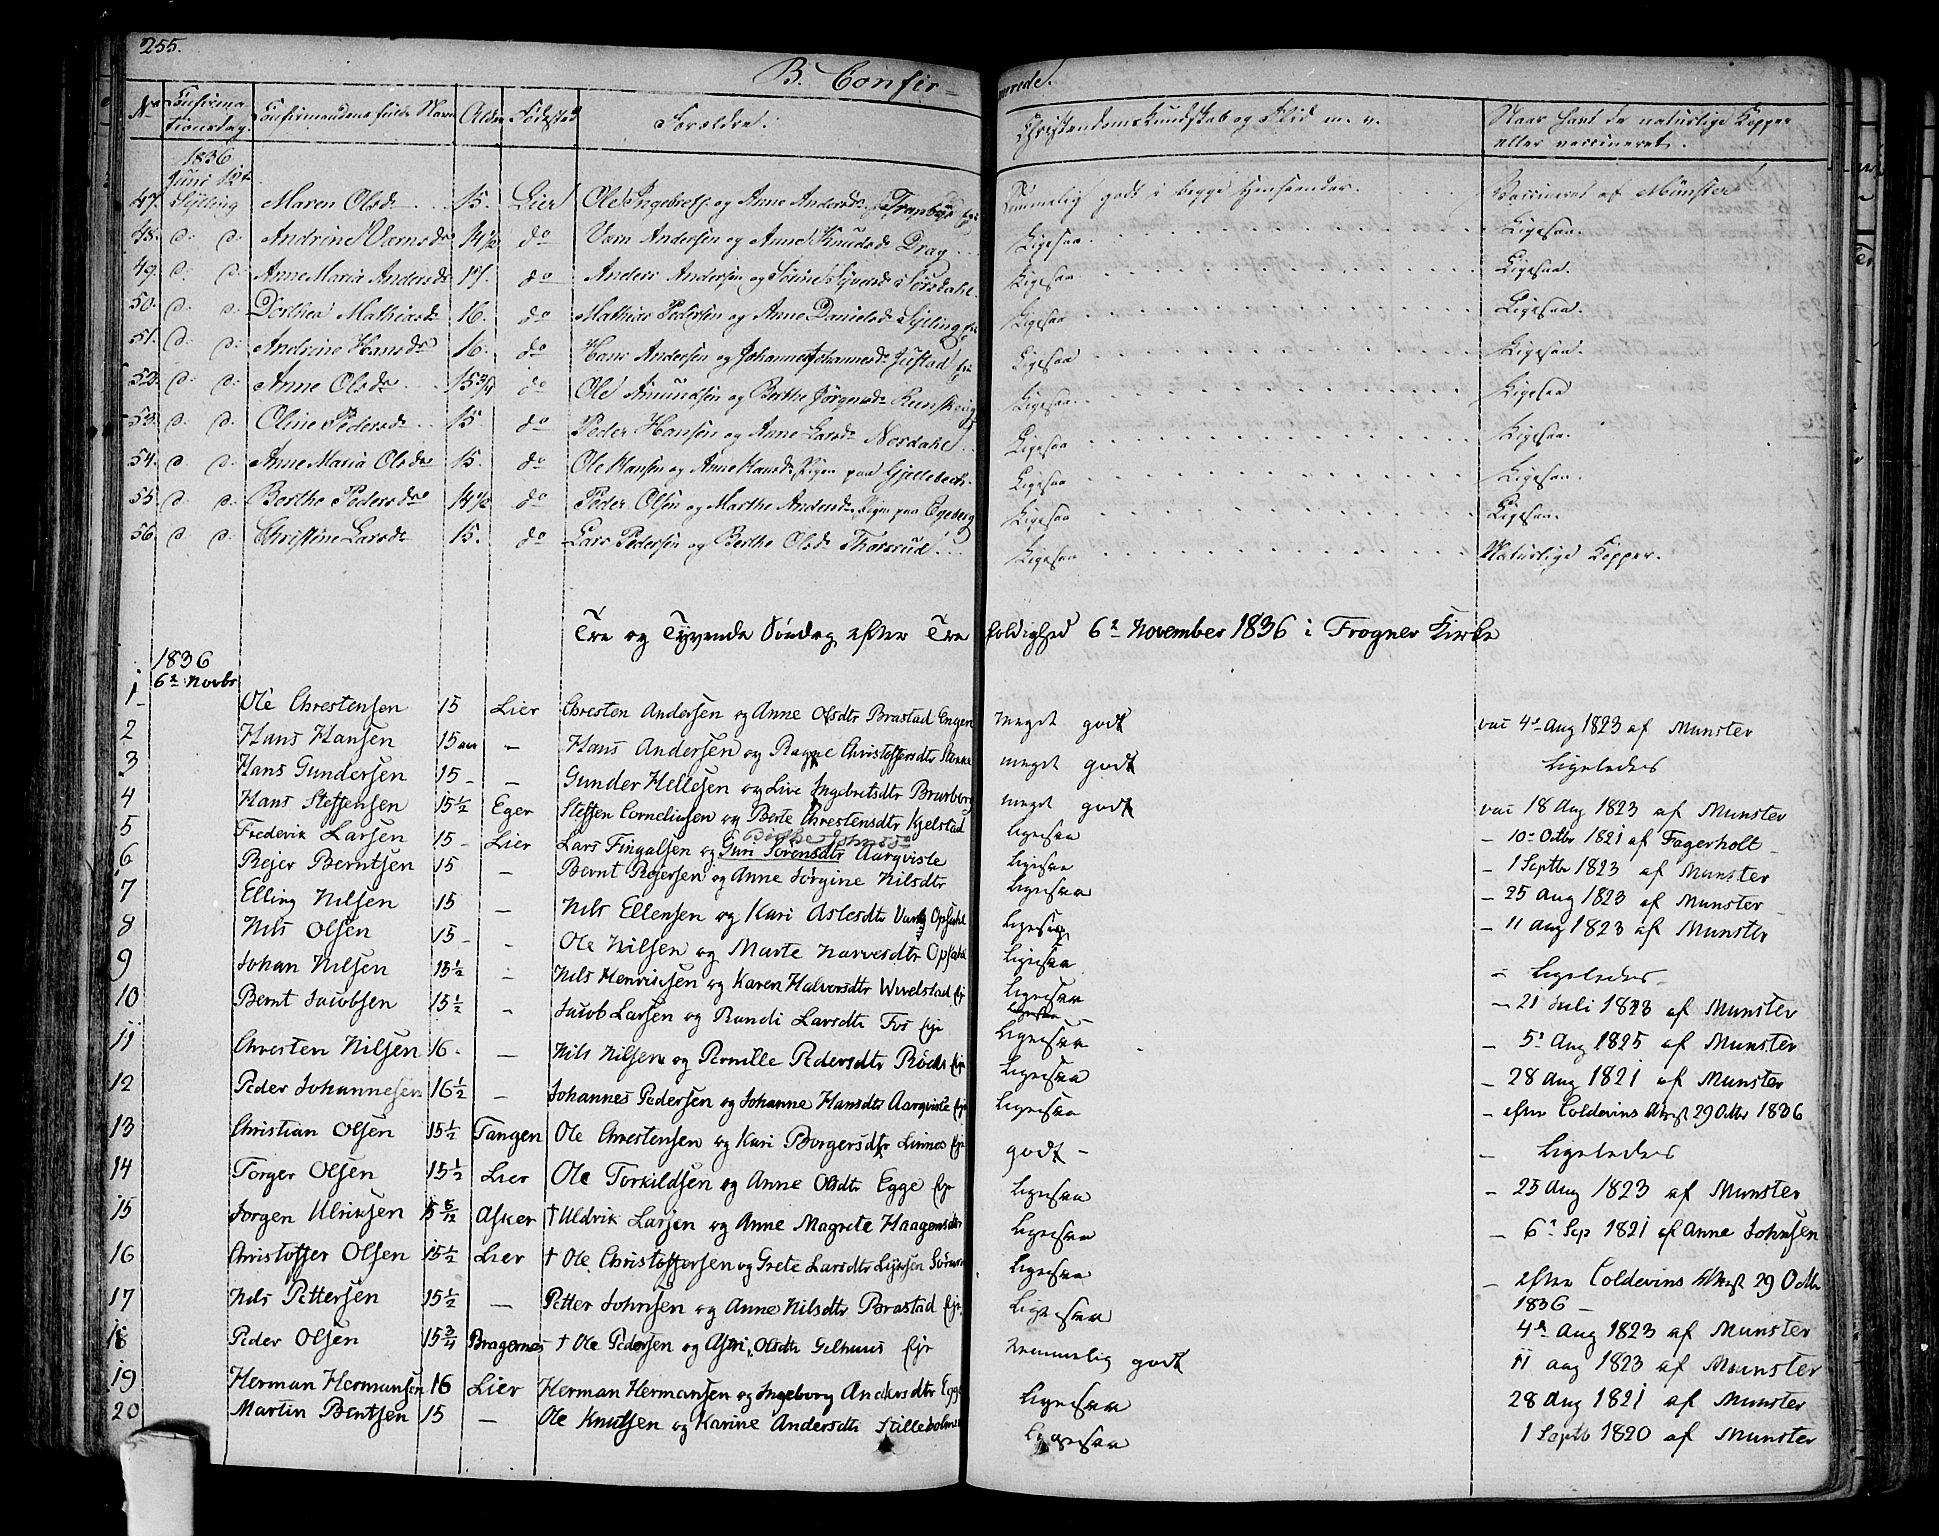 255.
B. Confirmerede.
No Confirmationsdag. Confirmandens fulde Navn Alder Fødested Forældre. Christendoms Kundskab og Flid m. v. Naar havt de naturlige Kopper eller vaccineret.
1836
Juni 12te
47. Sylling Maren Olsdr 15. Lier Ole Ingebrets. og Anne Andersdr Tranby Temmelig godt i begge Henseender. Vaccineret af Mønster
48. d: d: Andrine Varnsdr 14 1/2 do Varn Andersen og Anne Knudsdr Drag Ligesaa. Ligesaa.
49. d: d: Anne Maria Andersdr 17. do Anders Andersen og Sørine Syversdr Sørsdahl. Ligesaa Ligesaa.
50. d: d: Dorthea Mathiasdr 16. do Mathias Pedersen og Anne Danielsdr Sylling Ligesaa Ligesaa.
51. d: d: Andrine Hansdr 16. do Hans Andersen og Johanne Johannesdr Justad Ligesaa Ligesaa.
52. d: d: Anne Olsdr 15 3/4 do Ole Amundsen og Berthe Jørgensdr Ligesaa. Ligesaa
53. d: d: Oline Pedersdr 15. do Peder Hansen og Anne Larsdr Nordahl Ligesaa Ligesaa.
54. d: d: Anne Maria Olsdr 15. do Ole Hansen og Anne Hansdr paa Gjellebech. Ligesaa Ligesaa.
55 d: d: Berthe Pedersdr 14 1/2 do Peder Olsen og Marthe Andersdr paa Egeberg Ligesaa Ligesaa.
56. d: d: Christine Larsdr 15. do Lars Pedersen og Berthe Olsdr Thorsrud Ligesaa Naturlige Kopper.
Tre og Tyvende Søndag efter Trefoldighed 6te November 1836 i Frogner Kirke
1836
6te Novbr
1 Ole Chrestensen 15 Lier Chresten Andersen og Anne Olsdtr Brastad Engen meget godt vac 4de Aug 1823 af Munster
2 Hans Hansen 15 – Hans Andersen og Ragne Christoffersdtr meget godt Ligeledes
3 Hans Gundersen 15 – – Gunder Hellesen og Live Ingebretsdtr meget godt vac 18 Aug 1823 af Munster
4 Hans Steffensen 15 1/2 Eger Steffen Corneliusen og Berte Chrestensdtr Kjelstad Ligesaa – 10de Octbr 1821 af Fagerholt
5 Frederik Larsen 15 – Lier Lars Fingalsen og Guri Sørensdtr Aarqviste Ligesaa – 1 Septbr 1823 af Munster
6 Rejer Berntsen 15 – Bernt Rejersen og Anne Jørgine Nilsdtr Ligesaa – 25 Aug 1823 af Munster
7 Elling Nilsen 15 – Nils Ellensen og Kari Aslesdtr Opsahl Ligesaa – 11 Aug 1823 af Munster
8 Nils Olsen 15 – – Ole Nilsen og Marte Narvesdtr Opsahl Ligesaa – Ligeledes
9 Johan Nilsen 15 1/2 – Nils Henriksen og Karen Halvorsdtr Wivelstad Ejr Ligesaa – 21 Juli 1823 af Munster
10 Bernt Jacobsen 15 1/2 – Jacob Larsen og Randi Larsdtr Fos Ejr Ligesaa – 5te Aug 1825 af Munster
11 Chresten Nilsen 16 – – Nils Nilsen og Pernille Pedersdtr Ejr Ligesaa – 28 Aug 1821 af Munster
12 Peder Johannesen 16 1/2 – Johannes Pedersen og Johanne Hansdtr Aarqviste Ejr Ligesaa – efter Coldevins Attest 29 Octbr 1836
13 Christian Olsen 15 1/2 Tangen Ole Chrestensen og Kari Borgersdtr Linnes Ejr godt – – Ligeledes
14 Torger Olsen 15 1/2 Lier Ole Torkildsen og Anne Olsdtr Egge Ejr Ligesaa – 25 Aug 1823 af Munster
15 Jørgen Ulriksen 15 6/12 Asker † Uldrik Larsen og Anne Magrete Haagensdtr Ligesaa – 6te Sep 1821 af Anne Johnsen
16 Christoffer Olsen 15 1/2 Lier † Ole Christoffersen og Grete Larsdtr Ligesaa – efter Coldevins Attest 29 Octbr 1836 –
17 Nils Pettersen 15 1/2 – Petter Johnsen og Anne Nilsdtr Brastad Ejr Ligesaa 4de Aug 1823 af Munster
18 Peder Olsen 15 3/4 Bragernes † Ole Pedersen og Astri Olsdtr Gilhuus Ejr temmelig godt 11 aug 1823 af Munster
19 Herman Hermansen 16 Lier Herman Hermansen og Ingeborg Andersdtr Egge Ligesaa 28 Aug 1821 af Munster
20 Martin Berntsen 15 – Ole Knutsen og Karine Andersdtr Ligesaa 1 Septb 1820 af Munster